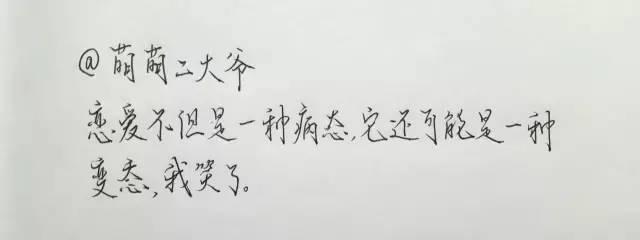 @萌萌二大爷
恋爱不但是一种病态,它还可能是一种
变态,我笑了。